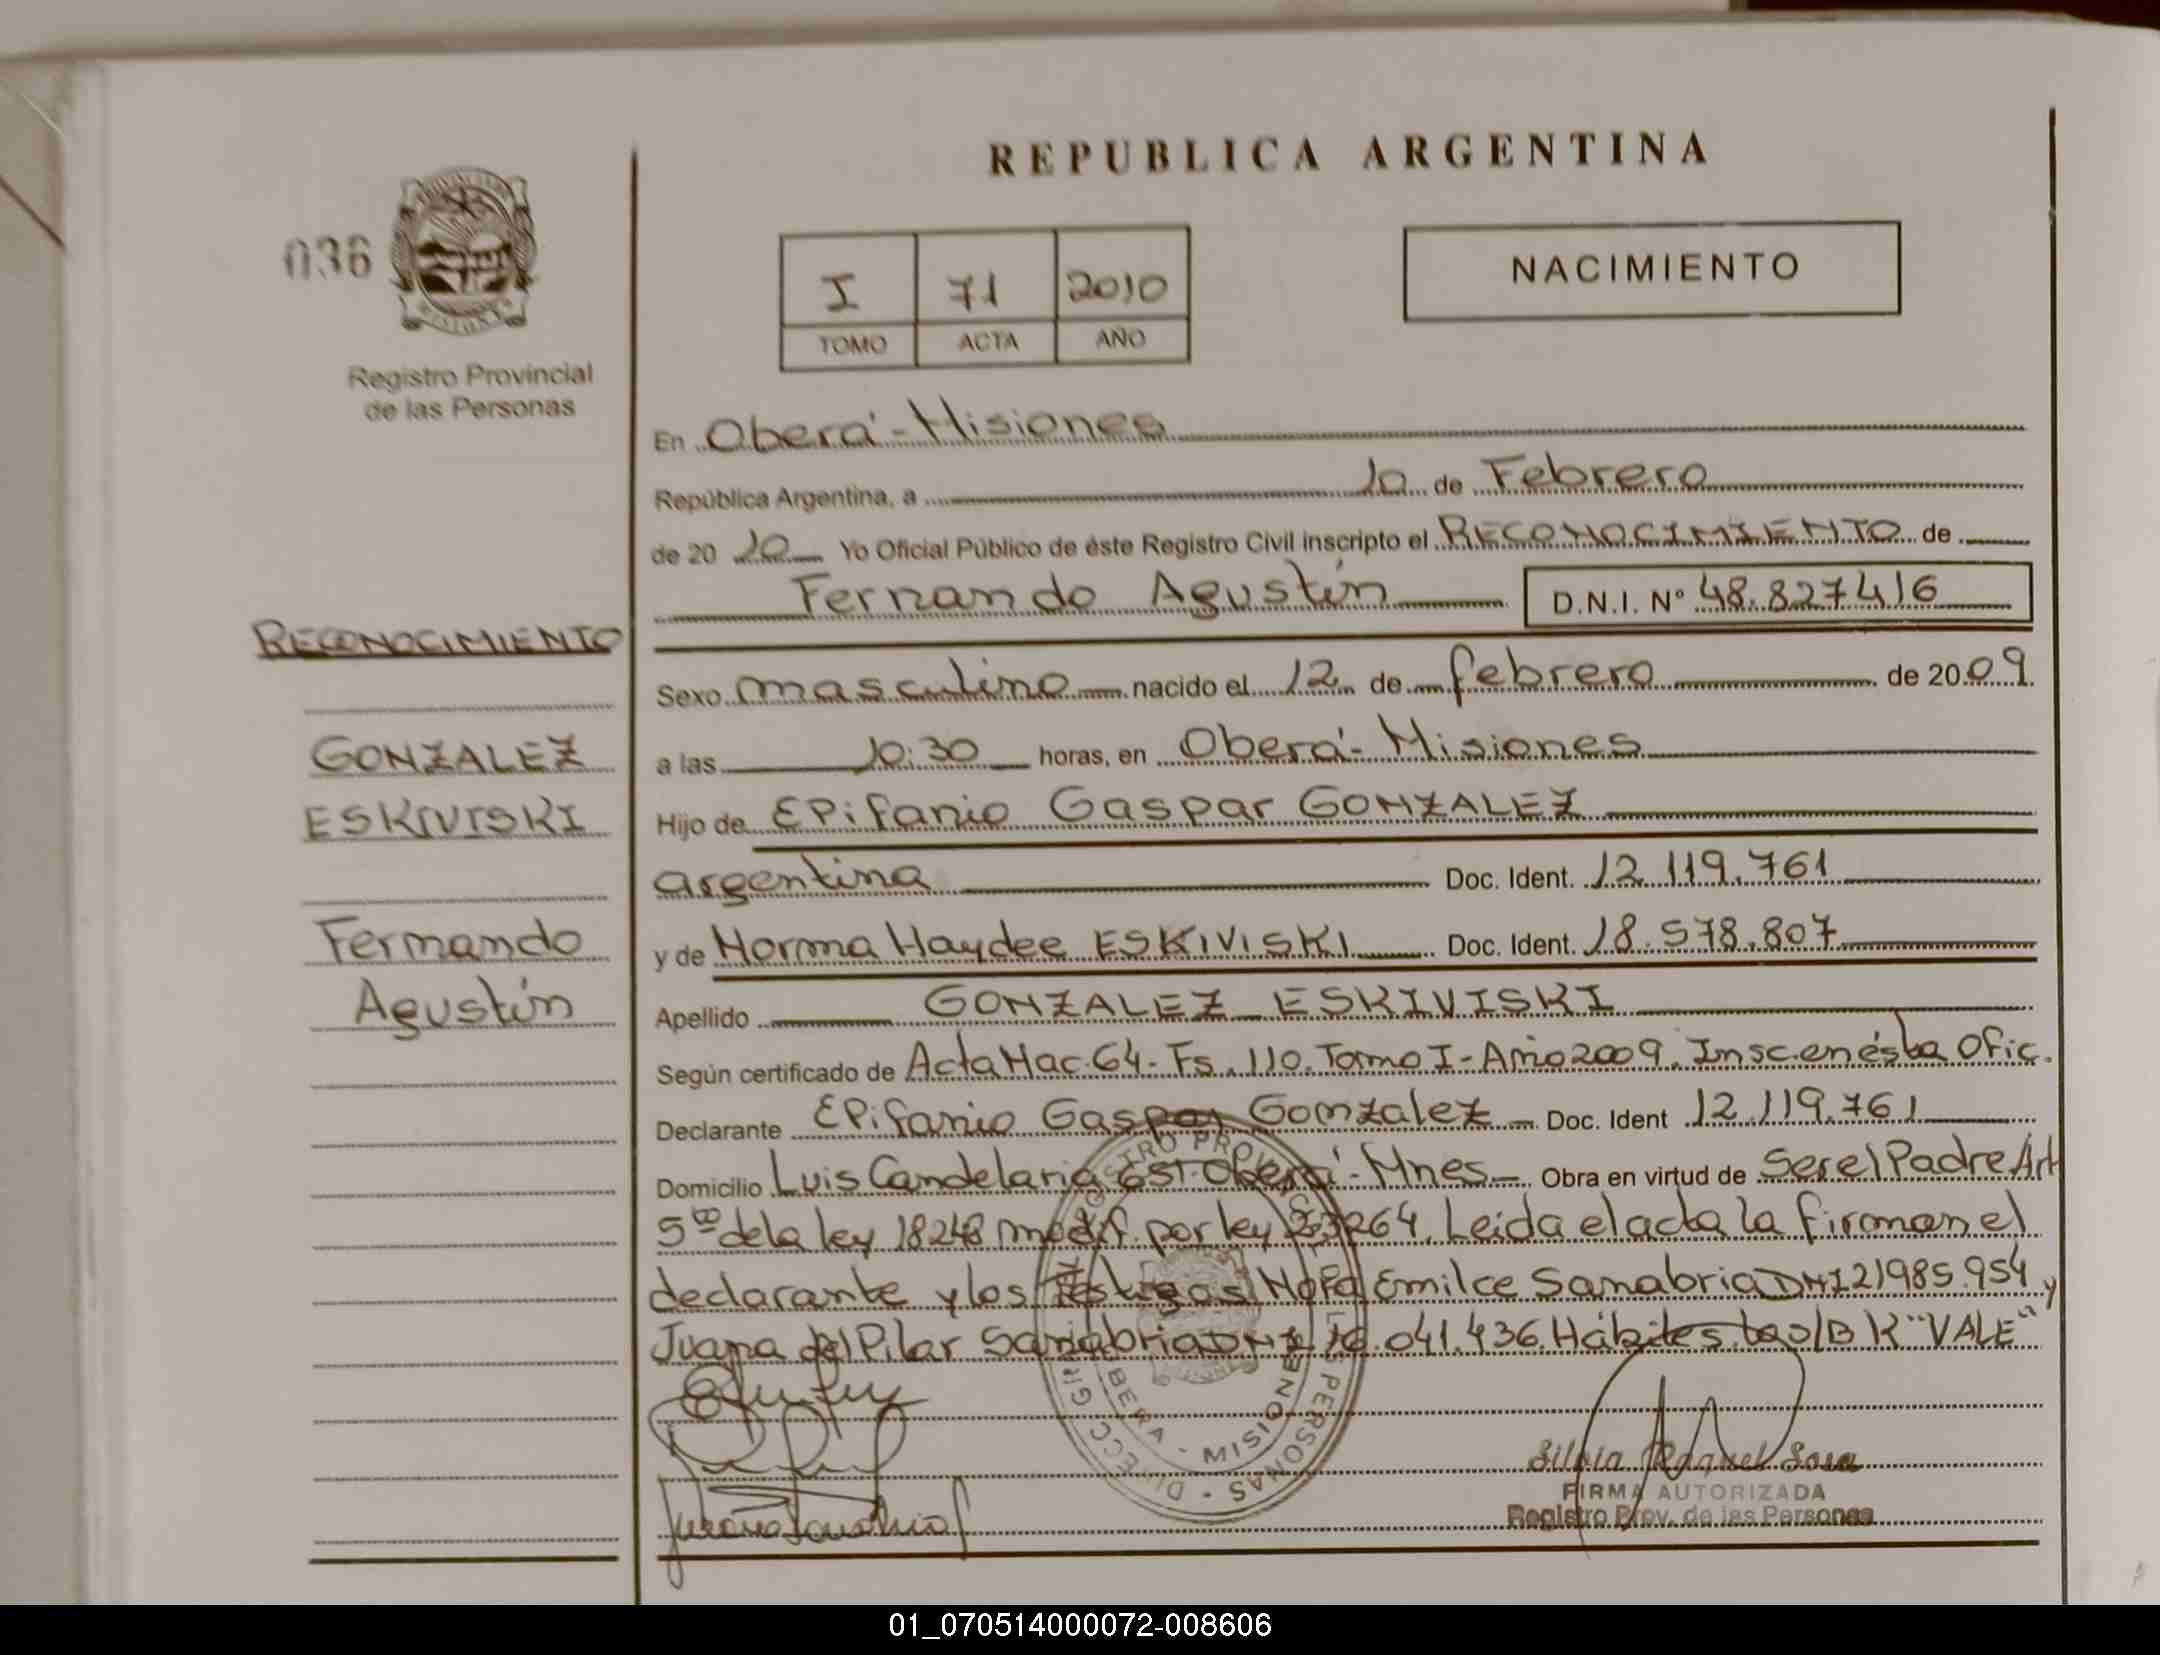 REPUBLICA ARGENTINA
036
I 71 2010
TOMO ACTA AÑO
NACIMIENTO
Registro Provincial
de las Personas
En Oberá - Misiones
República Argentina, a 10 de Febrero
de 20 10 Yo Oficial Público de éste Registro Civil inscripto el RECONOCIMIENTO de
Fernando Agustín D.N.I. Nº 48.827416
RECONOCIMIENTO
Sexo masculino nacido el 12 de febrero de 2009
GONZALEZ
a las 10:30 horas, en Oberá - Misiones
ESKIVISKI
Hijo de EPifanio Gaspar GONZALEZ
argentina Doc. Ident. 12.119.761
Fernando
y de Norma Haydee ESKIVISKI Doc. Ident. 18.578.807
Agustín
Apellido GONZALEZ ESKIVISKI
Según certificado de Acta Nac. 64 - Fs. 110. Tomo I - Año 2009. Insc. en ésta Ofic.
Declarante EPifanio Gaspar Gonzalez Doc. Ident 12.119.761
Domicilio Luis Candelaria Oberá - Mnes Obra en virtud de Ser el Padre Art
5to de la ley 18248 modif. por ley Leida el acta la firman el
declarante y los testigos Nora Emilce Sanabria DNI 21985.954 y
Juana del Pilar Sanabria DNI 16.041.436. Hábiles "VALE"
REGISTRO PROVINCIAL DE LAS PERSONAS - DIRECC GR
OBERA - MISIONES
Silvia Raquel Sosa
FIRMA AUTORIZADA
Registro Prov. de las Personas
01_070514000072-008606